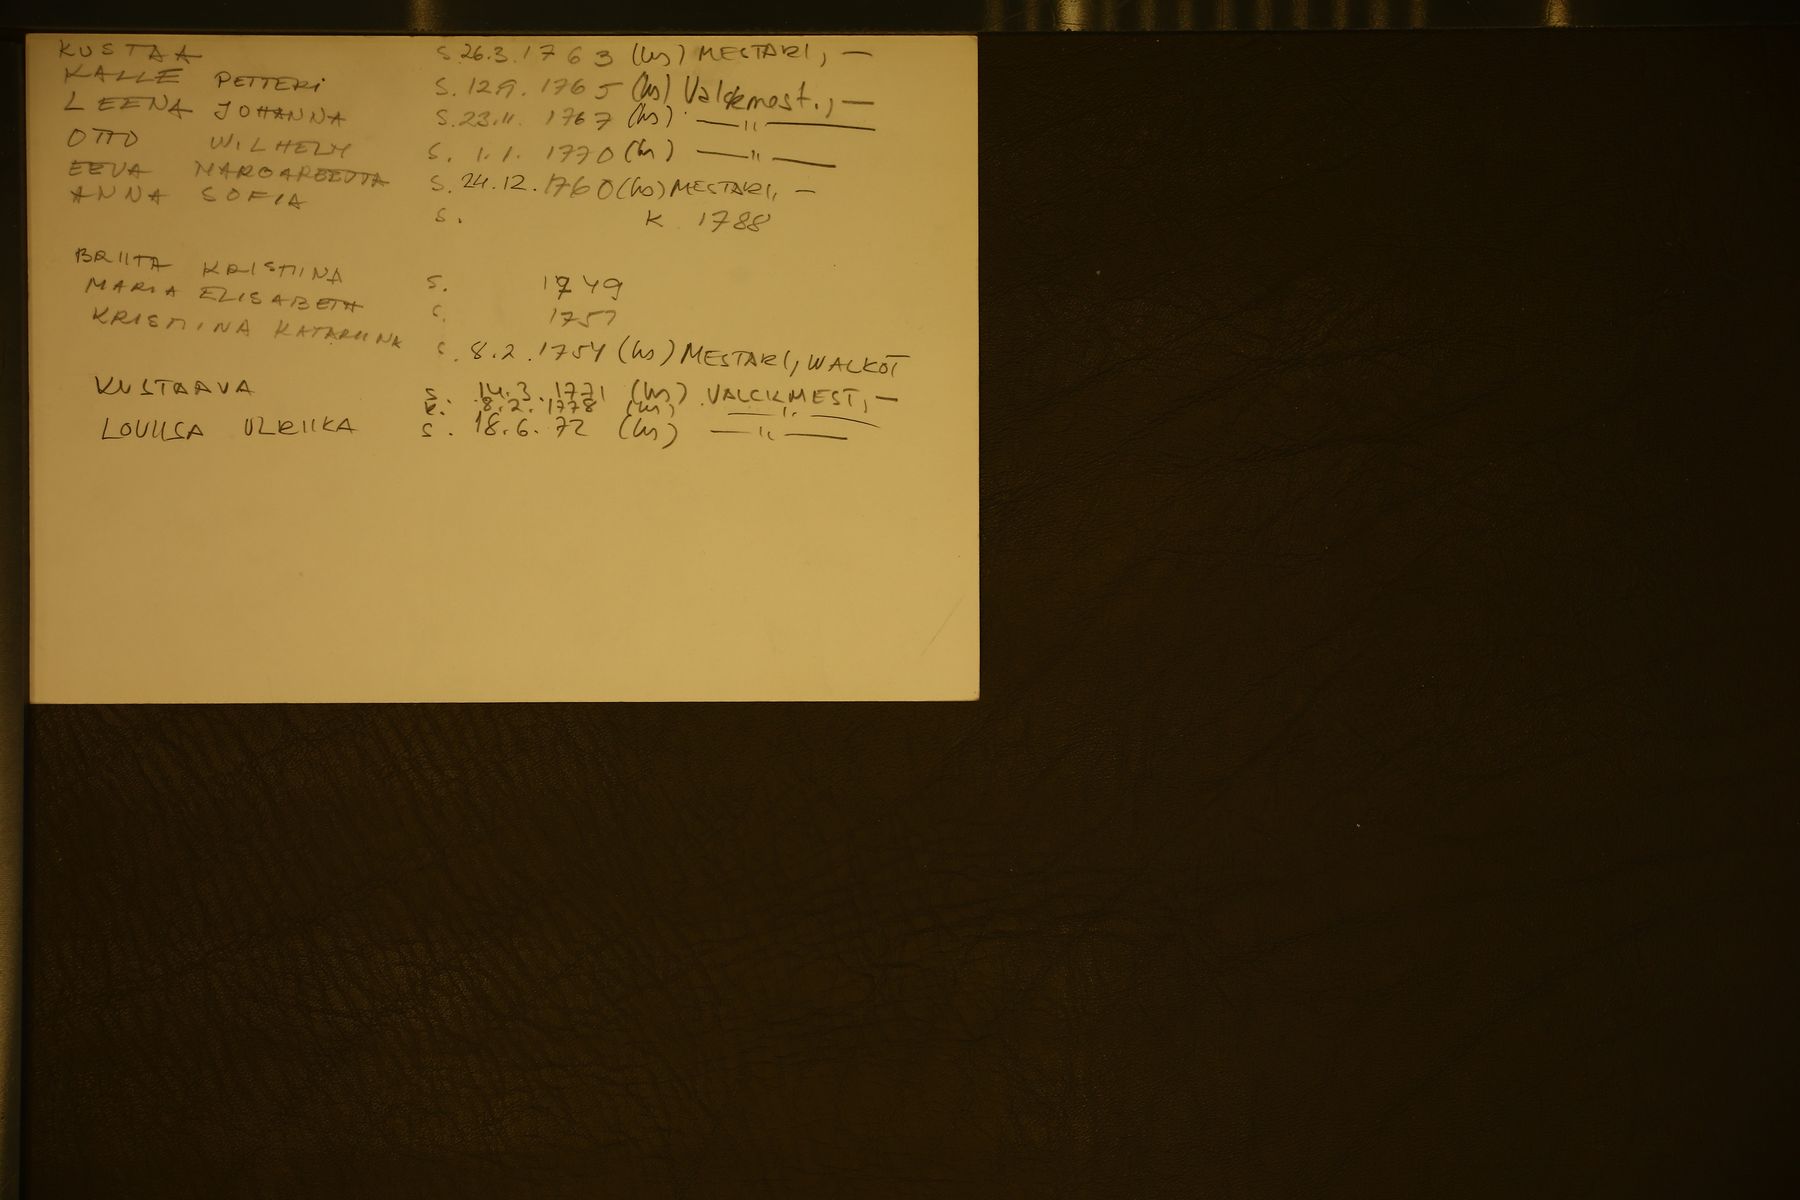 KUSTAA S. 26.3.1763 (hs) MESTARI, —
KALLE PETTERI S. 12.9.1765 (hs) Valckmest., —
LEENA JOHANNA S. 23.11.1767 (hs) —"—
OTTO WILHELM S. 1.1.1770 (hs) —"—
EEVA MARGAREETTA S. 24.12.1760 (hs) MESTARI, —
ANNA SOFIA S. K 1788
BRIITA KRISTIINA S. 1749
MARIA ELISABETH S. 1751
KRISTIINA KATARIINA S. 8.2.1754 (hs) MESTARI, WALKÖT
KUSTAAVA S. 14.3.1771 (hs) VALCKMEST, —
K. 8.2.1778 (hs) —"—
LOVIISA ULRIIKA S. 18.6.72 (hs) —"—